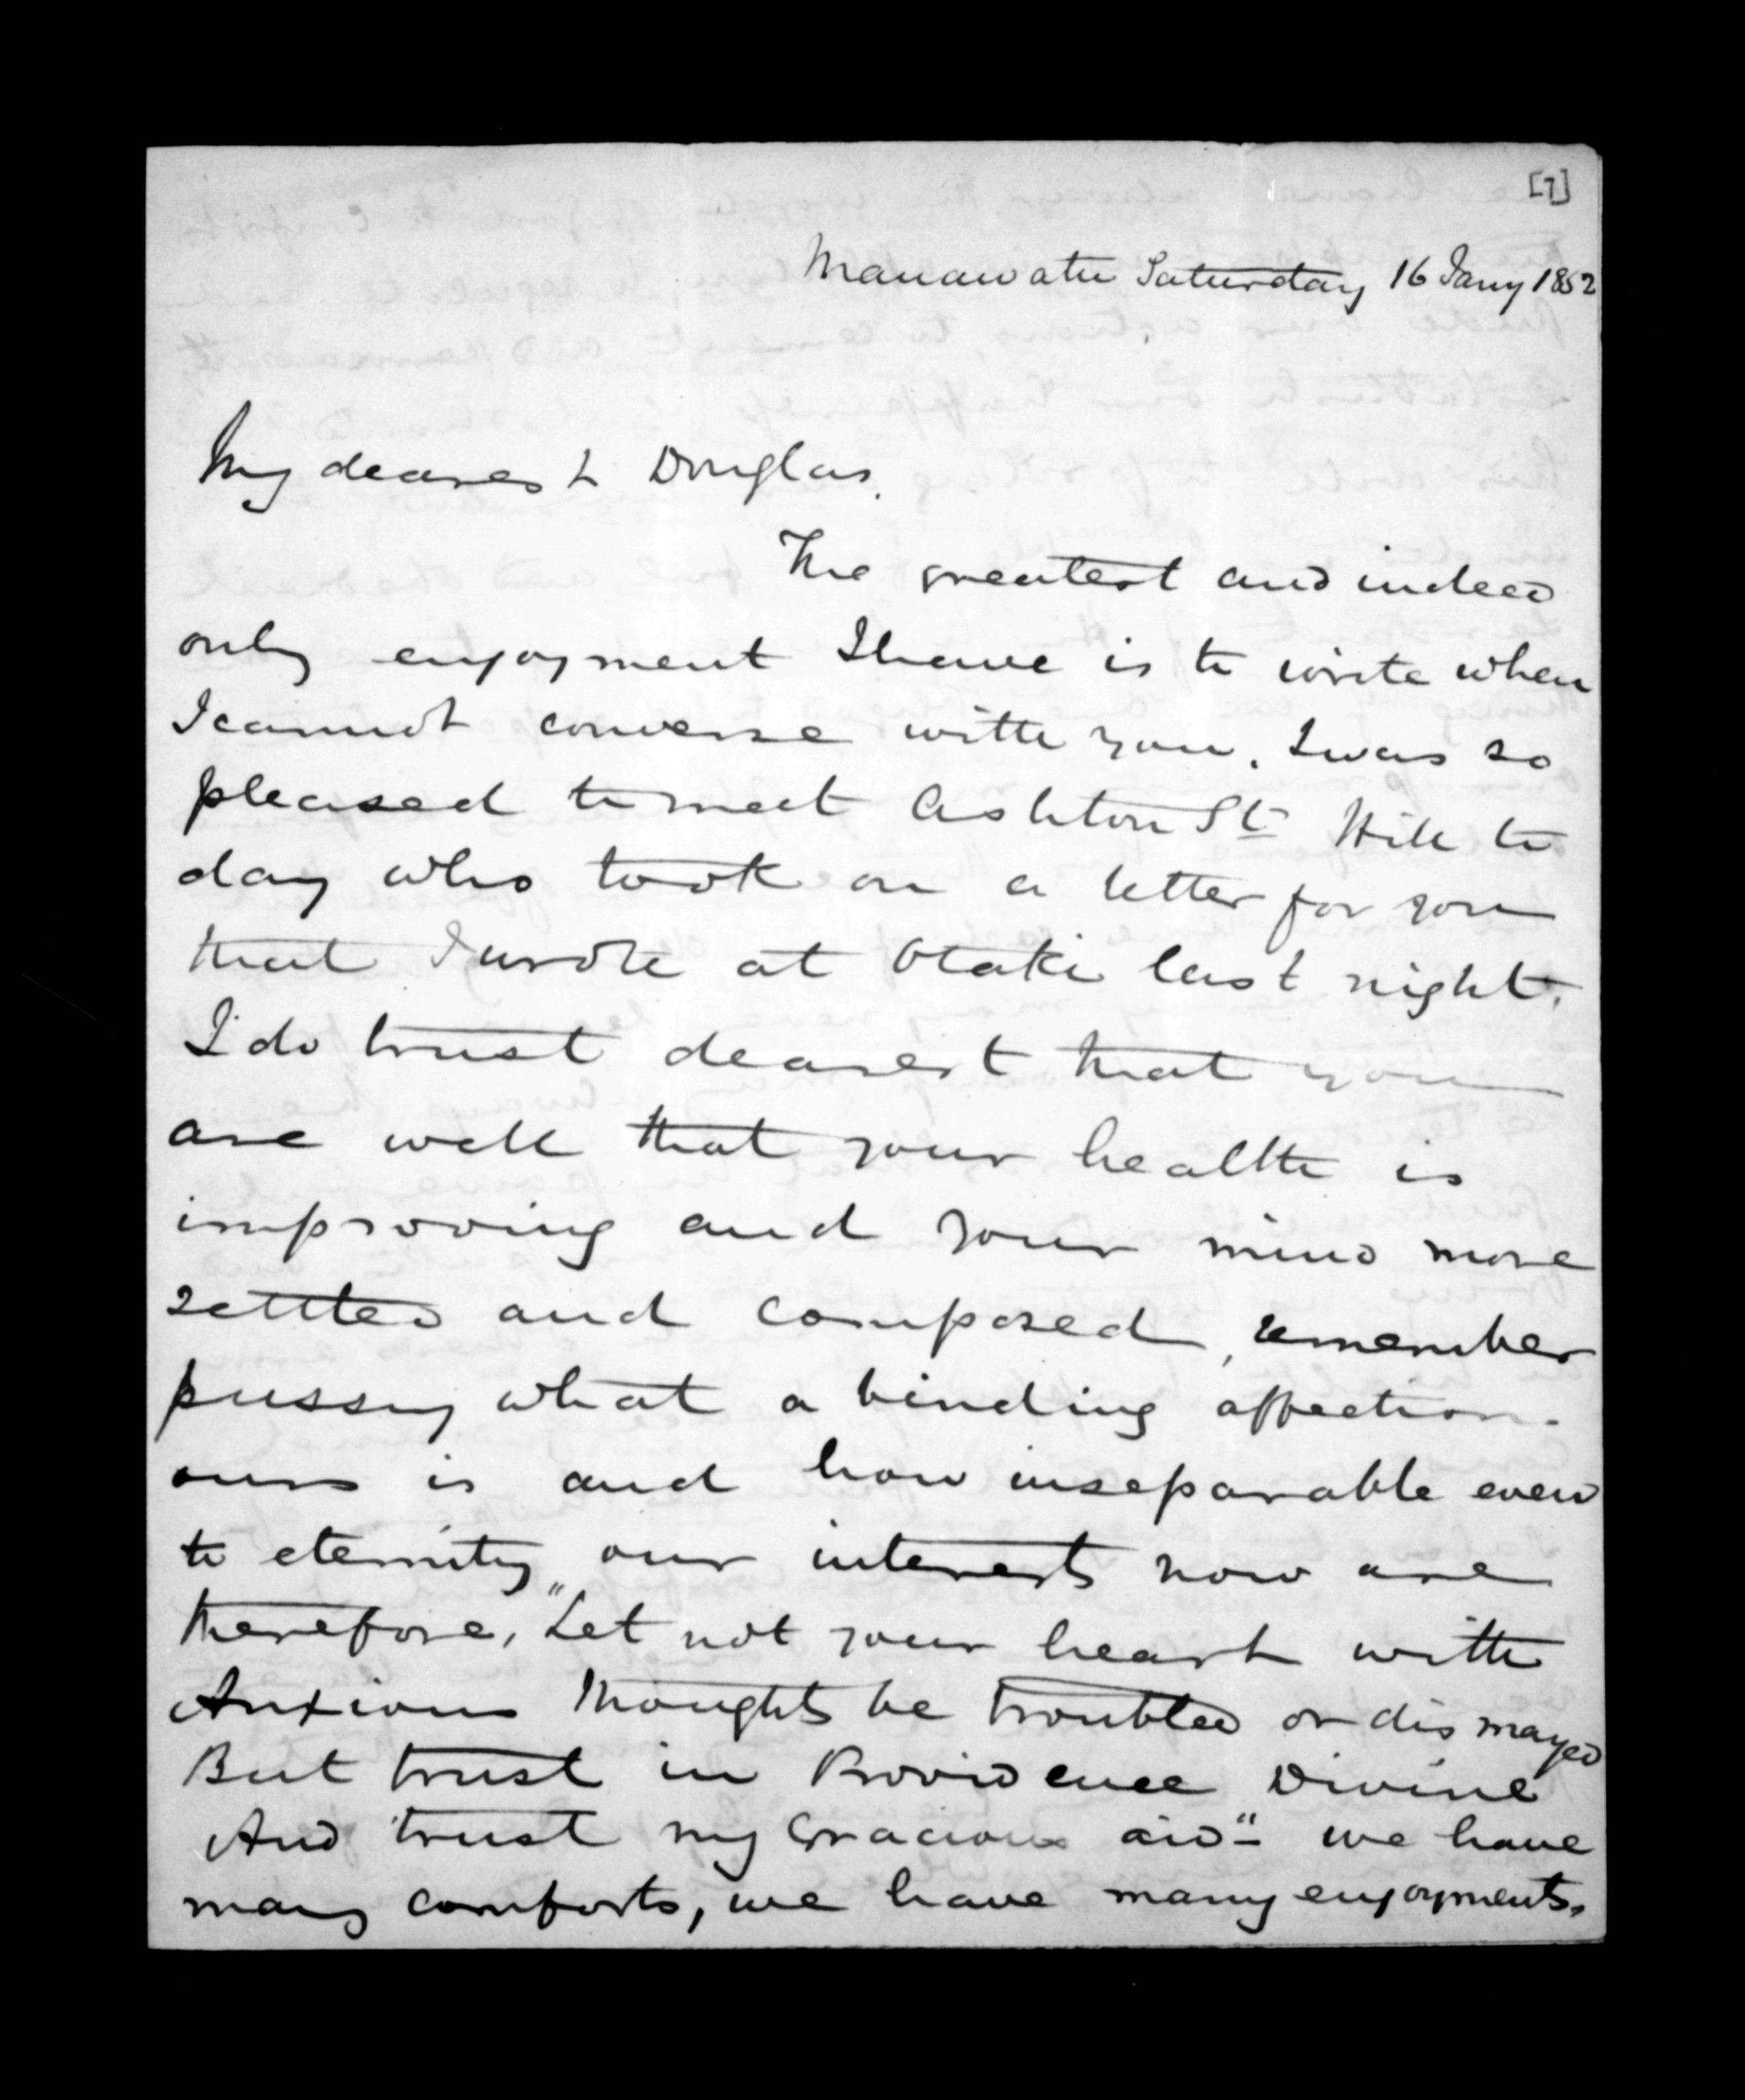 [7]
Manawatu Saturday 16 Jany 1852
My dearest Douglas.
The greatest and indeed
only enjoyment I have is to write when
I cannot converse with you. I was so
pleased to meet Ashton St Hill to
day who took on a letter for you
that I wrote at Otaki last night.
I do trust dearest that you
are well that your health is
improving and your mind more
settled and composed, remember
pussy what a binding affection
ours is and how inseparable even
to eternity our interests now are
therefore, "Let not your heart with
Anxious thoughts be troubled or dismayed
But trust in Providence Divine
And trust my Gracious aid" - we have
many comforts, we have many enjoyments,